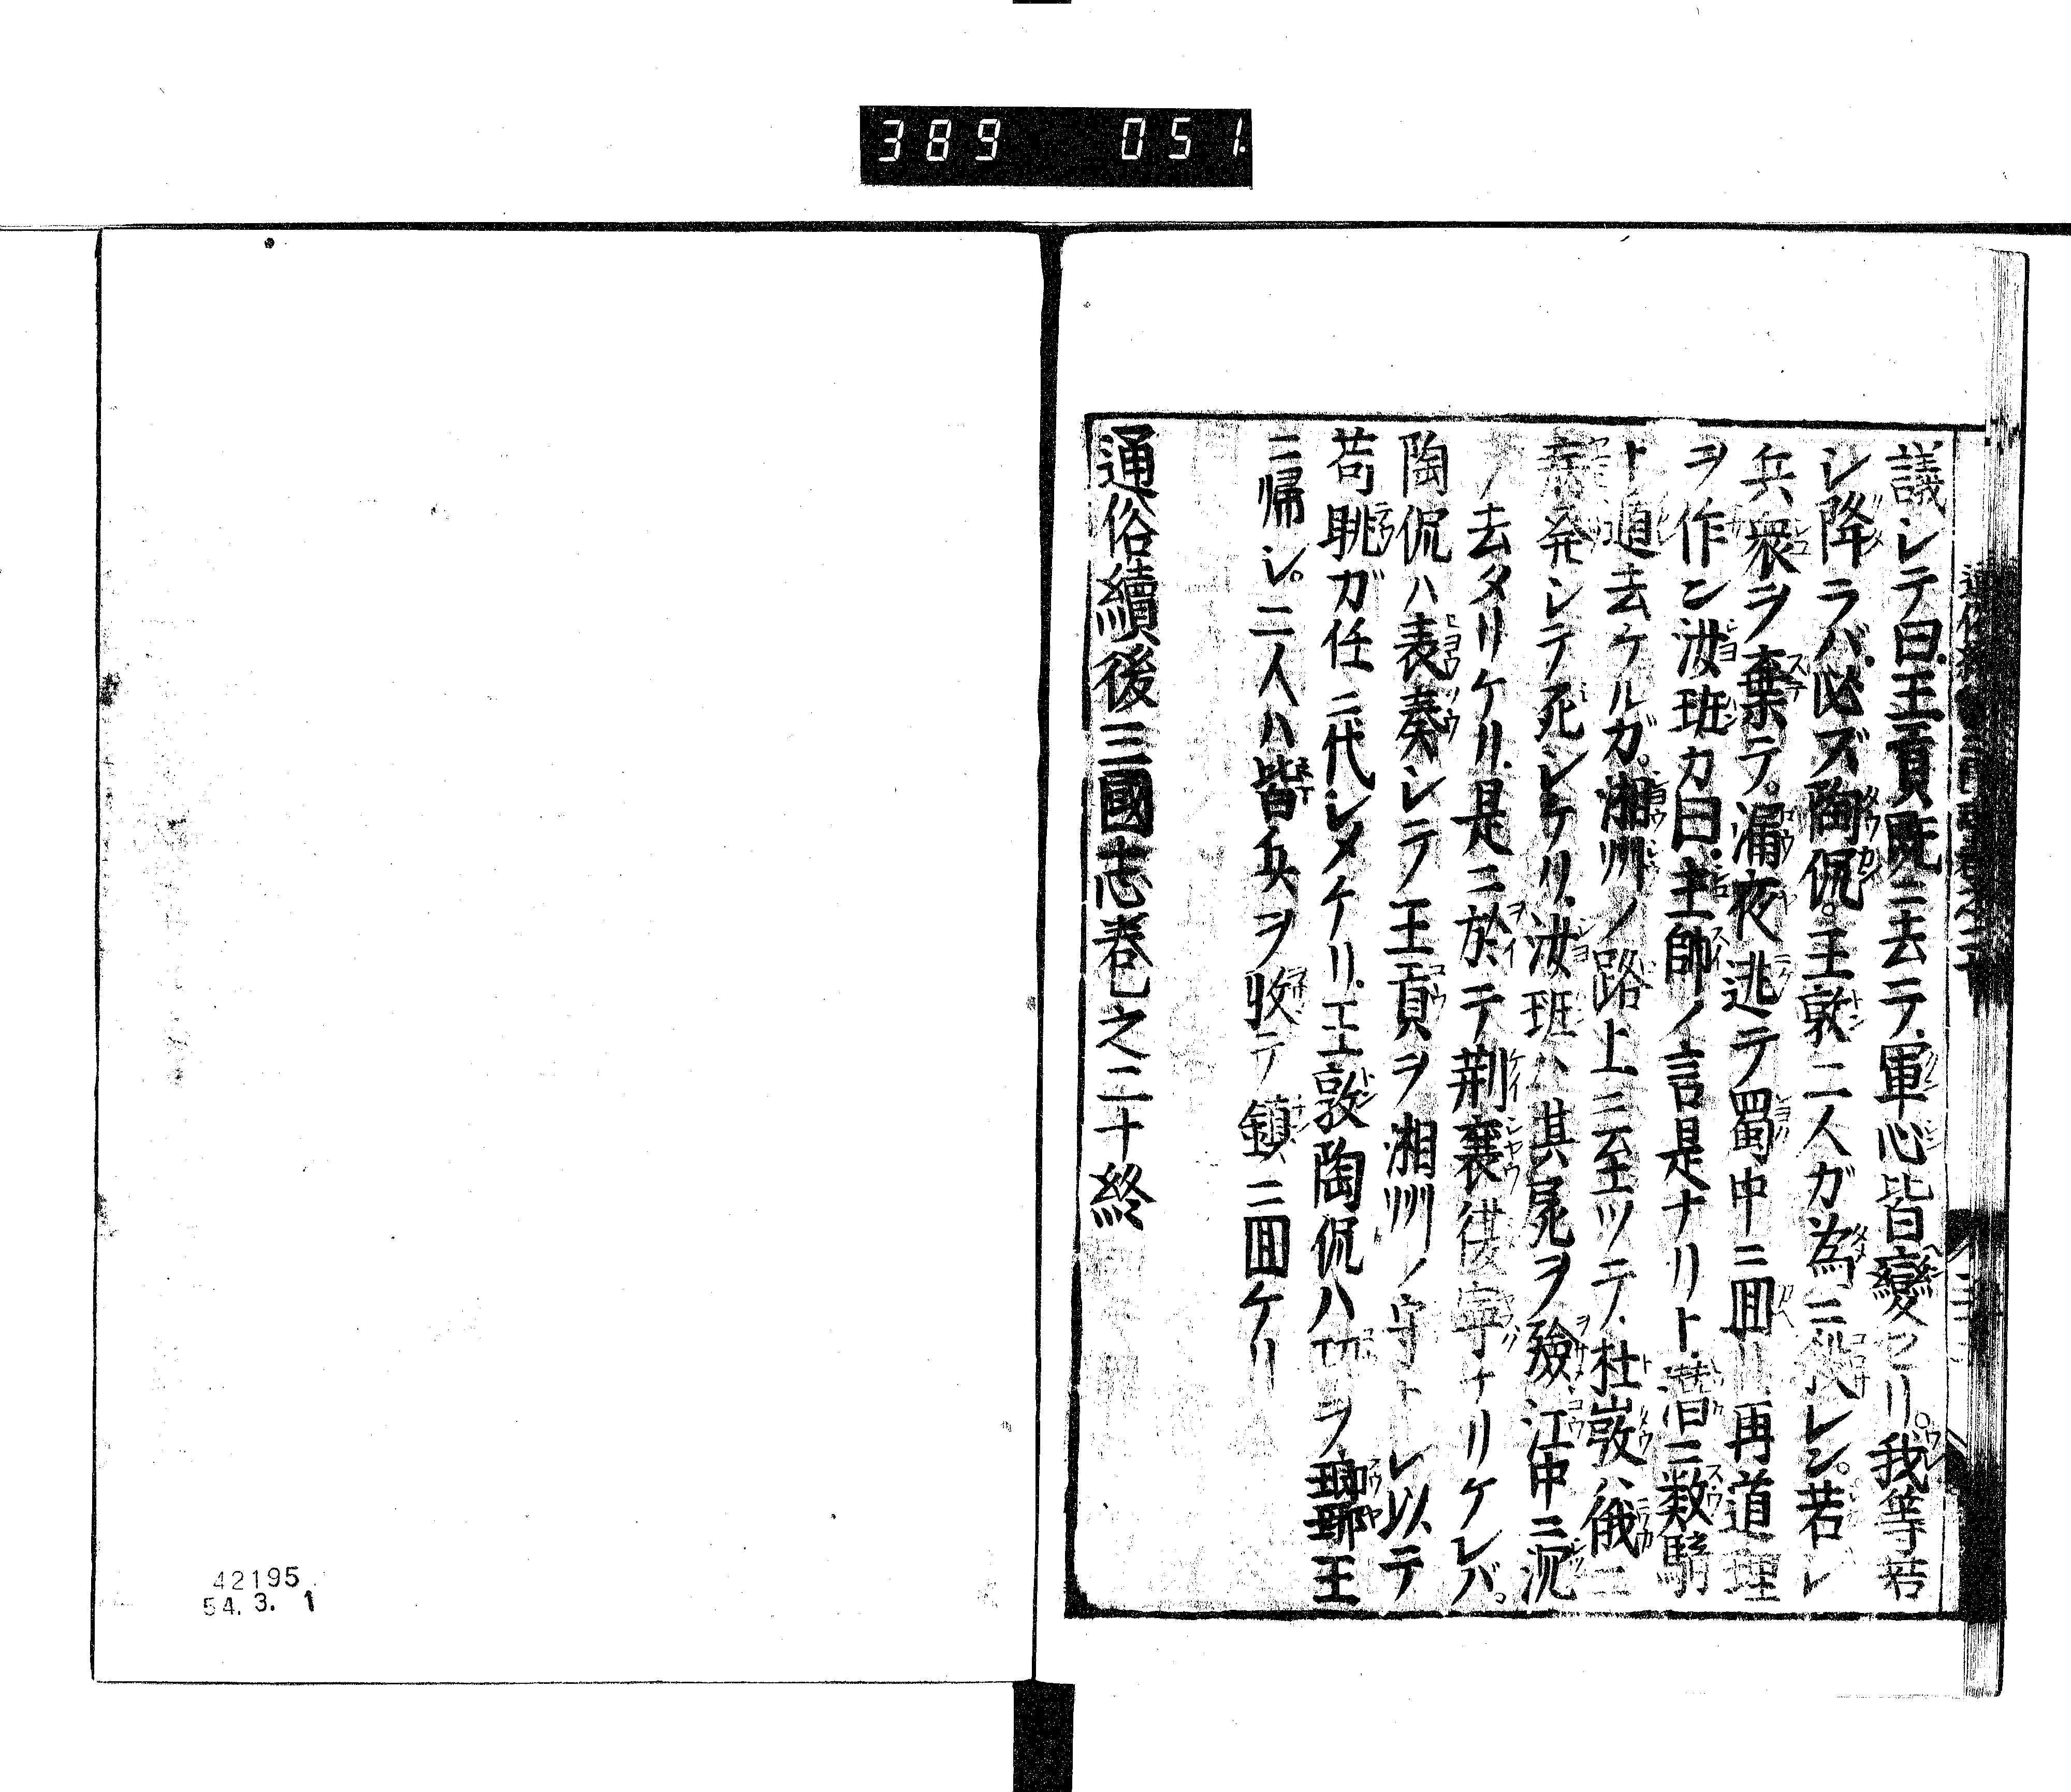 389 051
議シテ曰王貢既ニ去テ軍心皆變シリ。我等若
シ降ラバ必ズ陶侃。王敦二人ガ為ニ殺レン。若シ
兵衆ヲ棄テ。漏夜逃テ蜀中ニ囬リ再道理
ヲ作ン汝班カ曰主帥ノ言是ナリト潜ニ数騎
ト去ケルガ。湘州ノ路上ニ至ツテ杜敦ハ俄ニ
発シテ死シケリ汝班ハ其屍ヲ殮江中ニ沉
ノ去タリケリ是ニ於テ荆襄寧ナリケレバ。
陶侃ハ表奏シテ王貢ヲ湘州ノ守トシ以テ
苟眺ガ任ニ代シメケリ王敦陶侃ハ功ヲ瑯琊王
ニ帰シ。二人ハ皆兵ヲ收テ鎮ニ囬ケリ
通俗續後三國志卷之二十終
42195
54.3.1